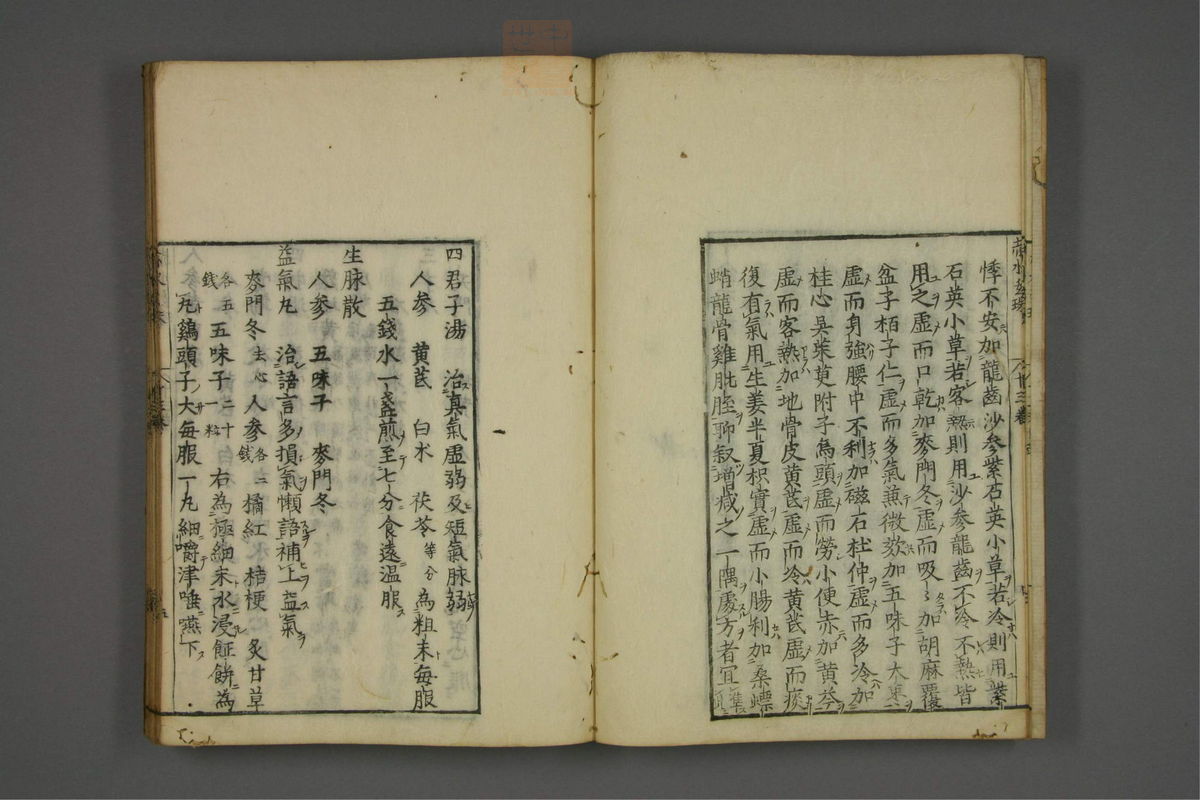 悸不安加龍齒沙參紫石英小草若冷則用紫
石英小草若客熱則用沙參龍齒不冷不熱皆
用之虛而口乾加麥門冬虛而吸〻加胡麻覆
盆子栢子仁虛而多氣兼微欬加五味子大棗
虛而身強腰中不利加磁石杜仲虛而多冷加
桂心吳茱萸附子烏頭虛而勞小便赤加黃芩
虛而客熱加地骨皮黃芪虛而冷黃芪虛而痰
復有氣用生姜半夏枳實虛而小腸利加桑螵
蛸龍骨雞肶胵聊叙增减之一隅處方者宜
四君子湯 治真氣虛弱及短氣脉弱
人參 黄芪 白朮 茯苓等分 為粗末每服
五錢水一盞煎至七分食遠溫服
生脉散
人參 五味子 麥門冬
益氣丸 治語言多損氣懶語補上益氣
麥門冬去心 人參各二錢 橘紅 桔梗 炙甘草
各五錢 五味子二十一粒 右為極細末水浸飩餅為
丸鷄頭子大每服一丸細嚼津唾嚥下